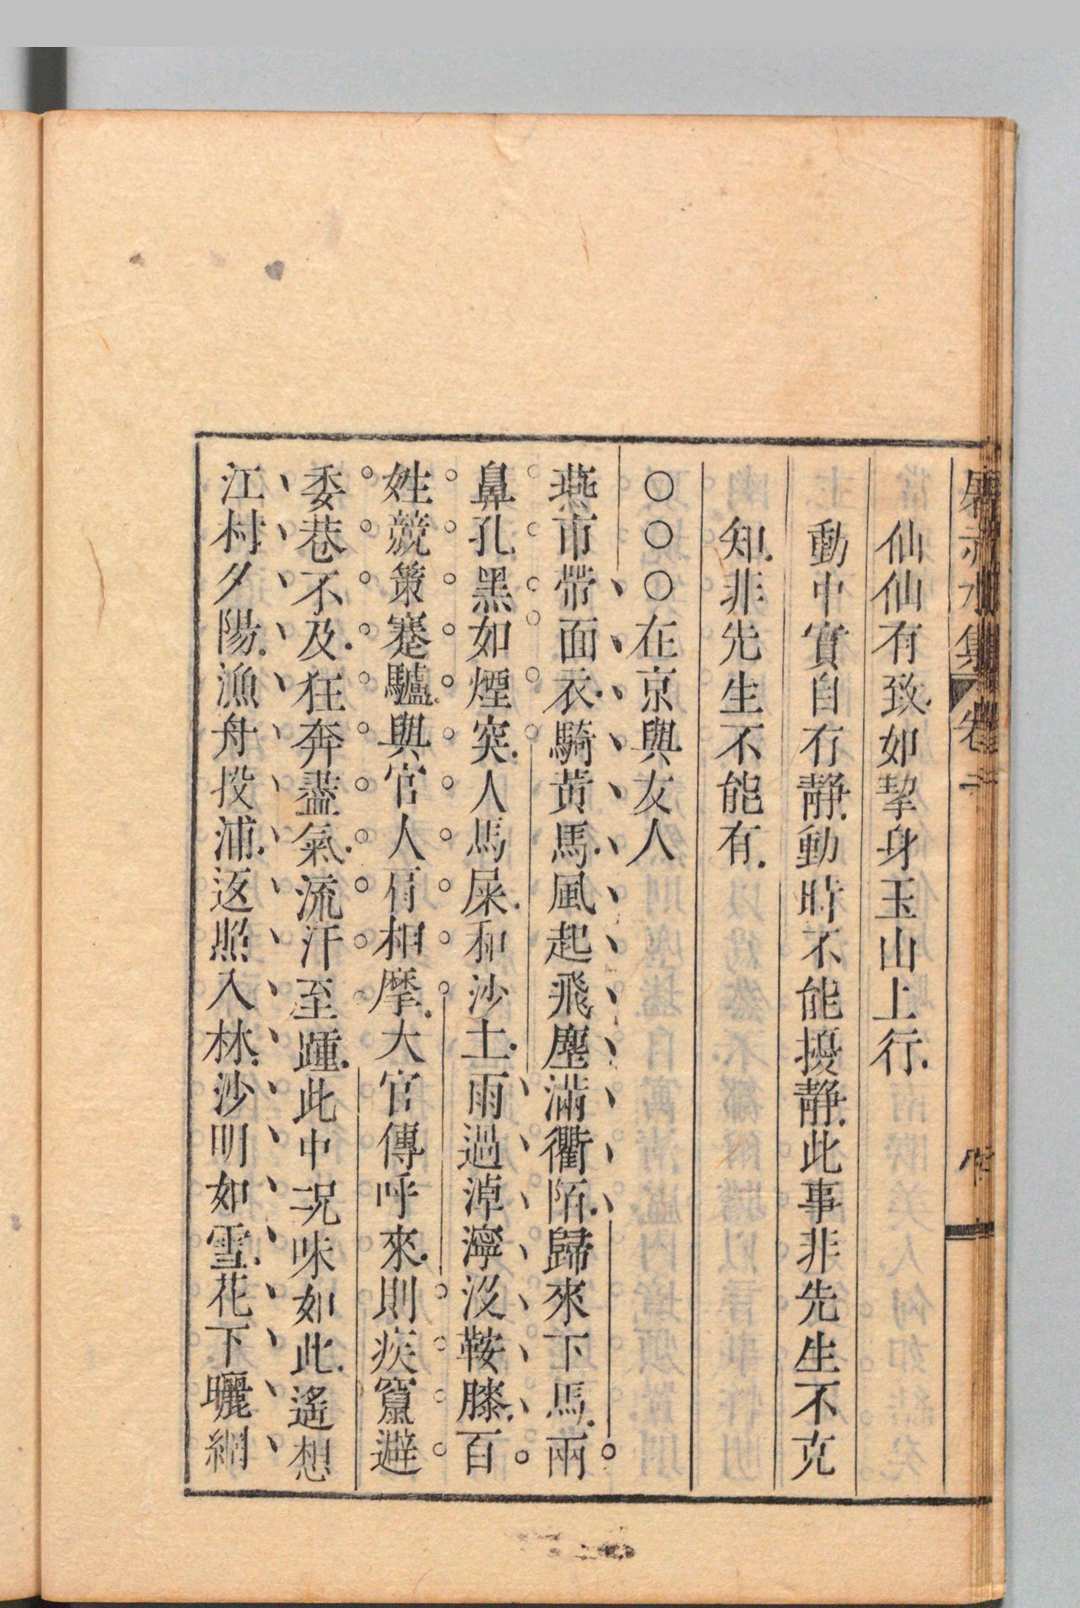 屠赤水集 卷二
仙仙有致.如挈身玉山上行.
動中實自有靜.動時不能擾靜.此事非先生不克
知.非先生不能有.
○○○在京與友人
燕市帶面衣.騎黃馬.風起飛塵滿衢陌.歸來下馬.兩
鼻孔黑如煙突.人馬屎.和沙土.雨過淖濘沒鞍膝.百
姓競策蹇驢.與官人肩相摩.大官傳呼來.則疾竄避
委巷不及.狂奔盡氣.流汗至踵.此中況味如此.遙想
江村夕陽.漁舟投浦.返照入林.沙明如雪.花下曬網